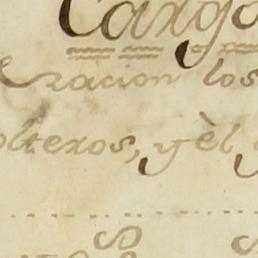 Cargo
racion los
olteros, y èl